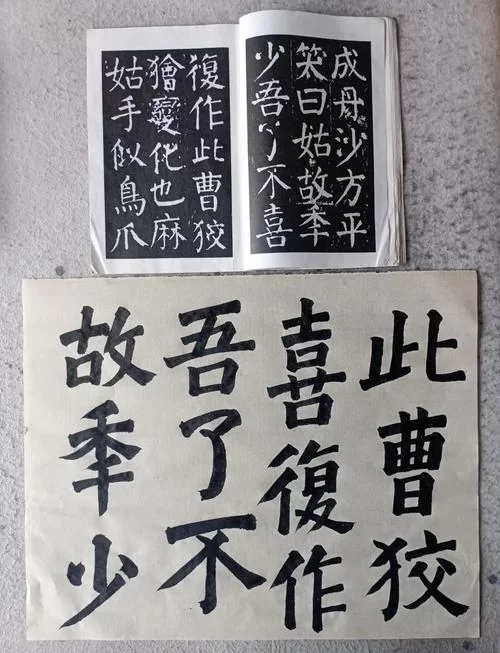 成丹沙方平
笑曰姑故秊
少吾了不喜
復作此曹狡
獪變化也麻
姑手似鳥爪
故秊少
吾了不
喜復作
此曹狡